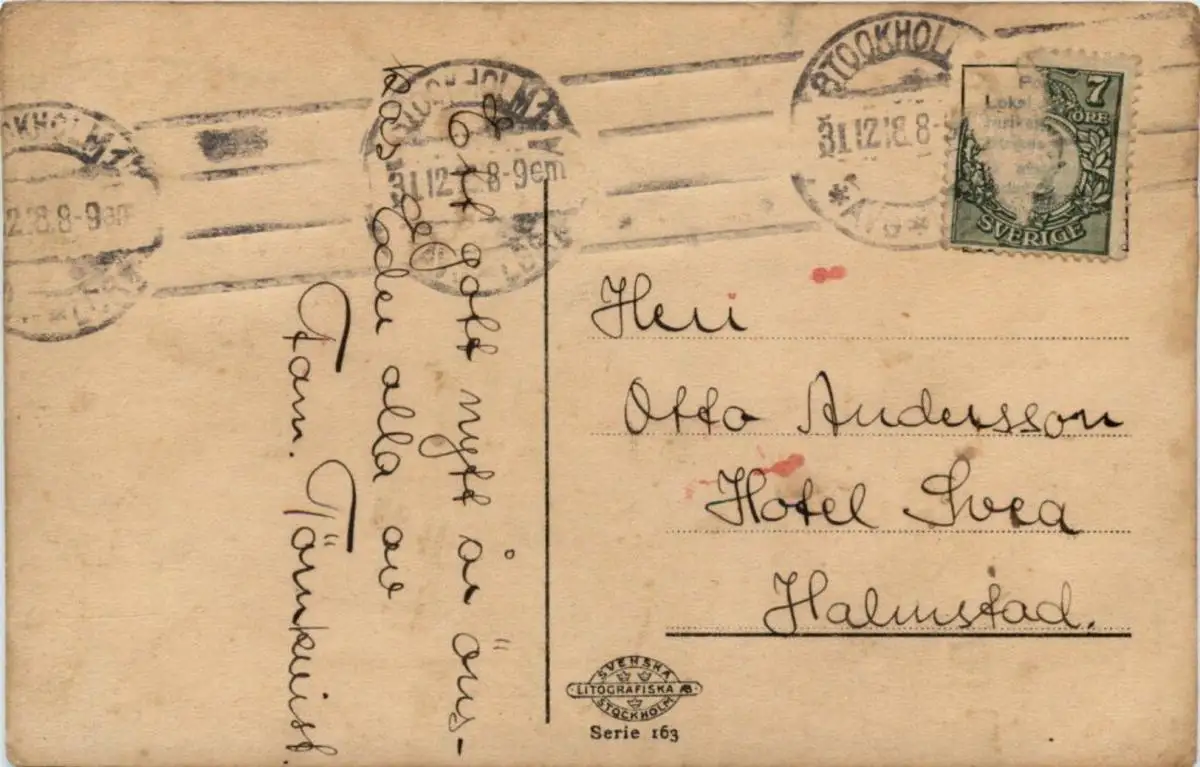 Ett gott nytt år öns-
kas Eder alla av
Fam. Törnkvist.
STOCKHOLM
31.12.18.8-9em
STOCKHOLM
31.12.18.8-
AVG
OCKHOLM
12.18.8-9em
7
ÖRE
SVERIGE
Lokal
Herr
Otto Andersson
Hotel Svea
Halmstad.
SVENSKA
LITOGRAFISKA AB.
STOCKHOLM
Serie 163